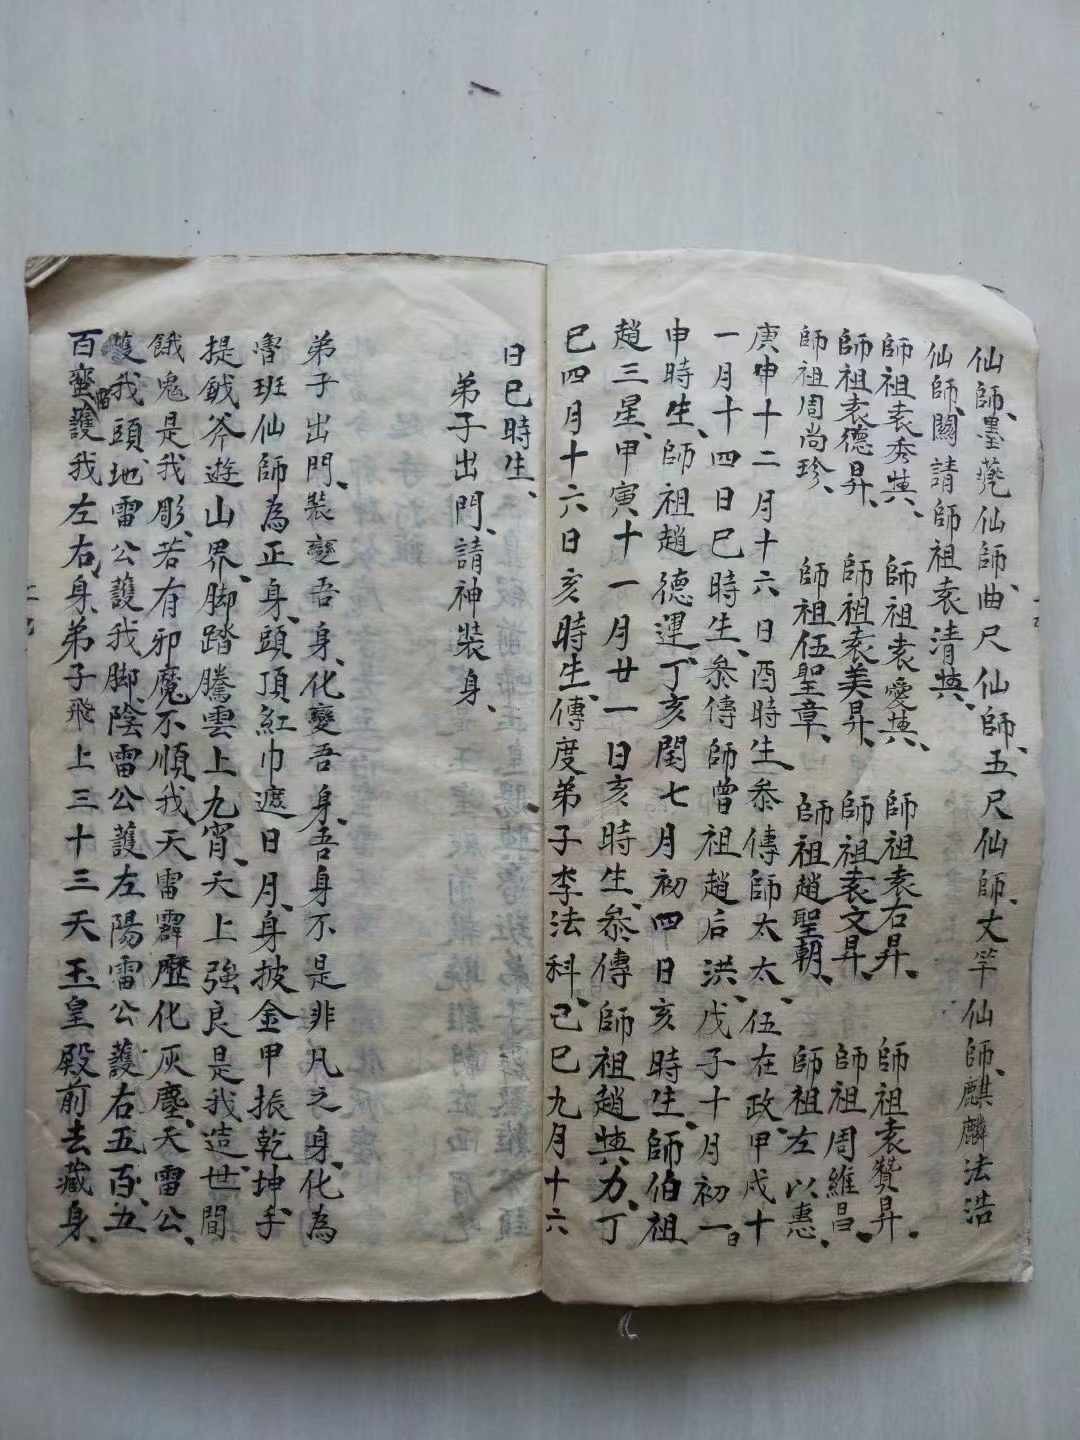 仙師、墨凳仙師、曲尺仙師、五尺仙師、丈竿仙師、麒麟法浩
仙師、闕請師祖袁清典、
師祖袁秀典、師祖袁愛典、師祖袁右昇、師祖袁贊昇、
師祖袁德昇、師祖袁美昇、師祖袁文昇、師祖周維昌、
師祖周尚珍、師祖伍聖章、師祖趙聖朝、師祖左以惠、
庚申十二月十六日酉時生、叅傳師太太、伍在政、甲戌十
一月十四日巳時生、叅傳師曾祖趙后洪、戊子十月初一日
申時生、師祖趙德運、丁亥閏七月初四日亥時生、師伯祖
趙三星、甲寅十一月廿一日亥時生、叅傳師祖趙典力、丁
巳四月十六日亥時生、傳度弟子李法科、己巳九月十六
日巳時生、
弟子出門、請神裝身、
弟子出門、裝變吾身、化變吾身、吾身不是非凡之身、化為
魯班仙師為正身、頭頂紅巾遮日月、身披金甲振乾坤、手
提鉞斧遊山界、脚踏騰雲上九宵、天上強良是我造、世間
餓鬼是我彫、若有邪魔不順我、天雷霹靂化灰塵、天雷公
護我頭、地雷公護我脚、陰雷公護左、陽雷公護右、五百、五
百蠻雷護我左右身、弟子飛上三十三天、玉皇殿前去藏身、